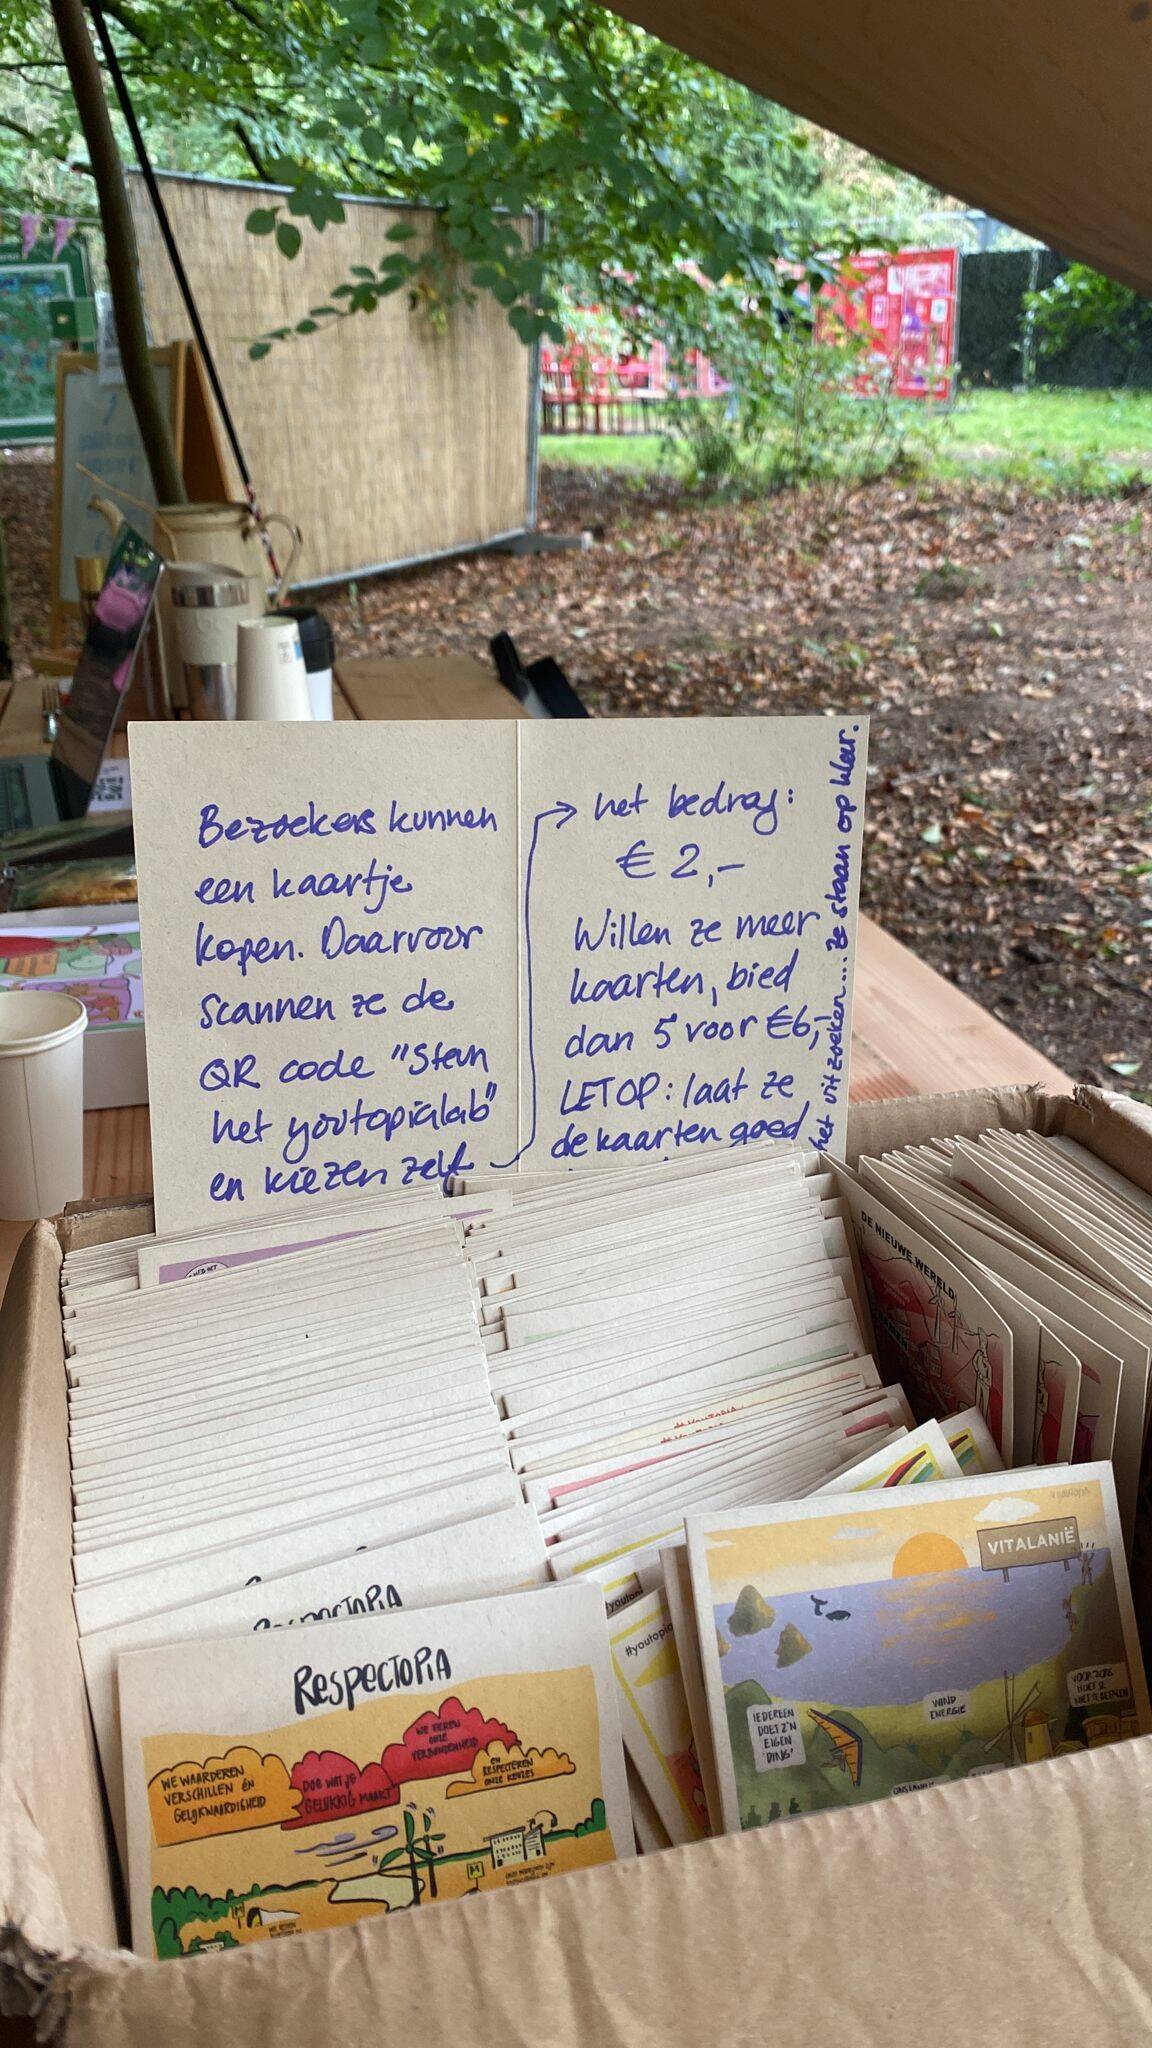 Bezoekers kunnen
een kaartje
kopen. Daarvoor
scannen ze de
QR code "Steun
het youtopialab"
en kiezen zelf
→ het bedrag:
€ 2,-
Willen ze meer
kaarten, bied
dan 5 voor €6,-
LET OP: laat ze
de kaarten goed
het uitzoeken... ze staan op kleur.
DE NIEUWE WERELD
RESPECTOPIA
RESPECTOPIA
WE WAARDEREN
VERSCHILLEN ÉN
GELIJKWAARDIGHEID
DOE WAT JE
GELUKKIG MAAKT
WE VIEREN
ONZE
VERBONDENHEID
EN
RESPECTEREN
ONZE KEUZES
#youtopia
VITALANIË
IEDEREEN
DOET Z'N
EIGEN
'DING'
WIND
ENERGIE
VOOR ZORG
HOEF JE
NIET TE BETALEN